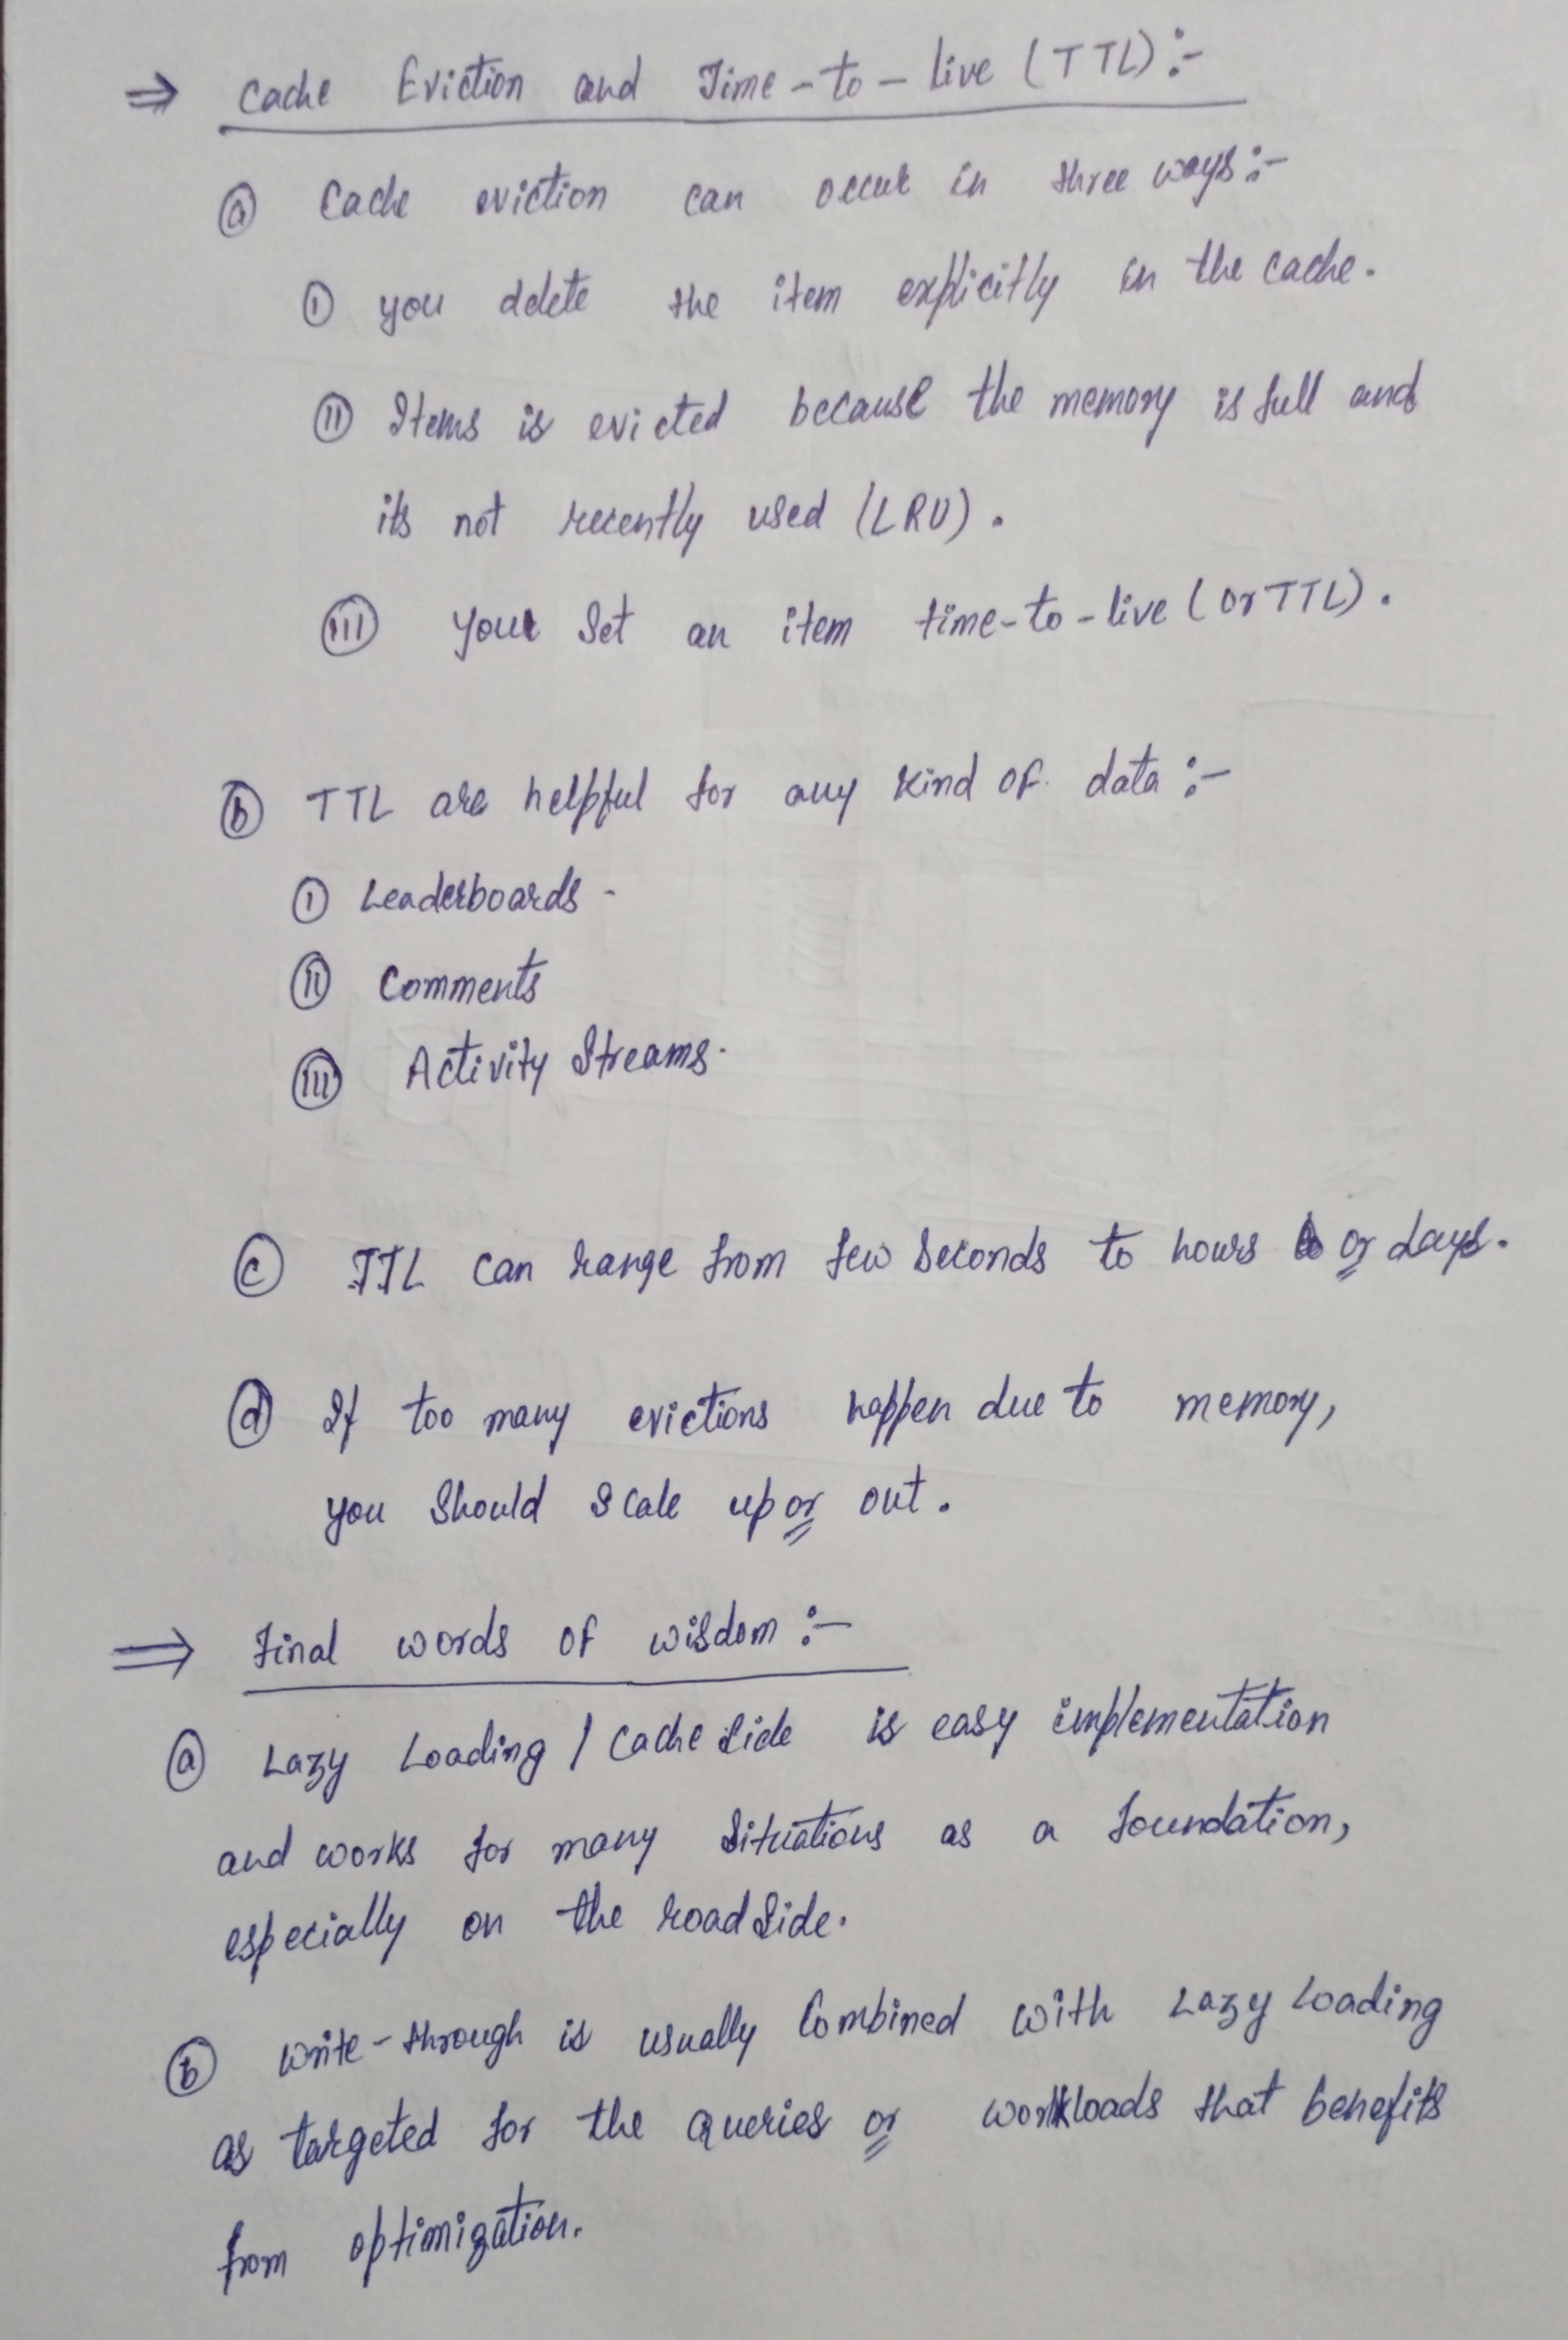 ⇒ Cache Eviction and Time-to-live (TTL):-
ⓐ Cache eviction can occur in three ways:-
① you delete the item explicitly in the cache.
ⓘⓘ Items is evicted because the memory is full and
its not recently used (LRU).
(iii) your set an item time-to-live (or TTL).
ⓑ TTL are helpful for any kind of data:-
(i) Leaderboards -
(ii) Comments
(iii) Activity Streams.
ⓒ TTL can range from few seconds to hours or days.
ⓓ If too many evictions happen due to memory,
you should scale up or out.
⇒ Final words of wisdom:-
ⓐ Lazy Loading / Cache side is easy implementation
and works for many situations as a foundation,
especially on the road side.
ⓑ write-through is usually combined with Lazy Loading
as targeted for the queries or workloads that benefits
from optimization.